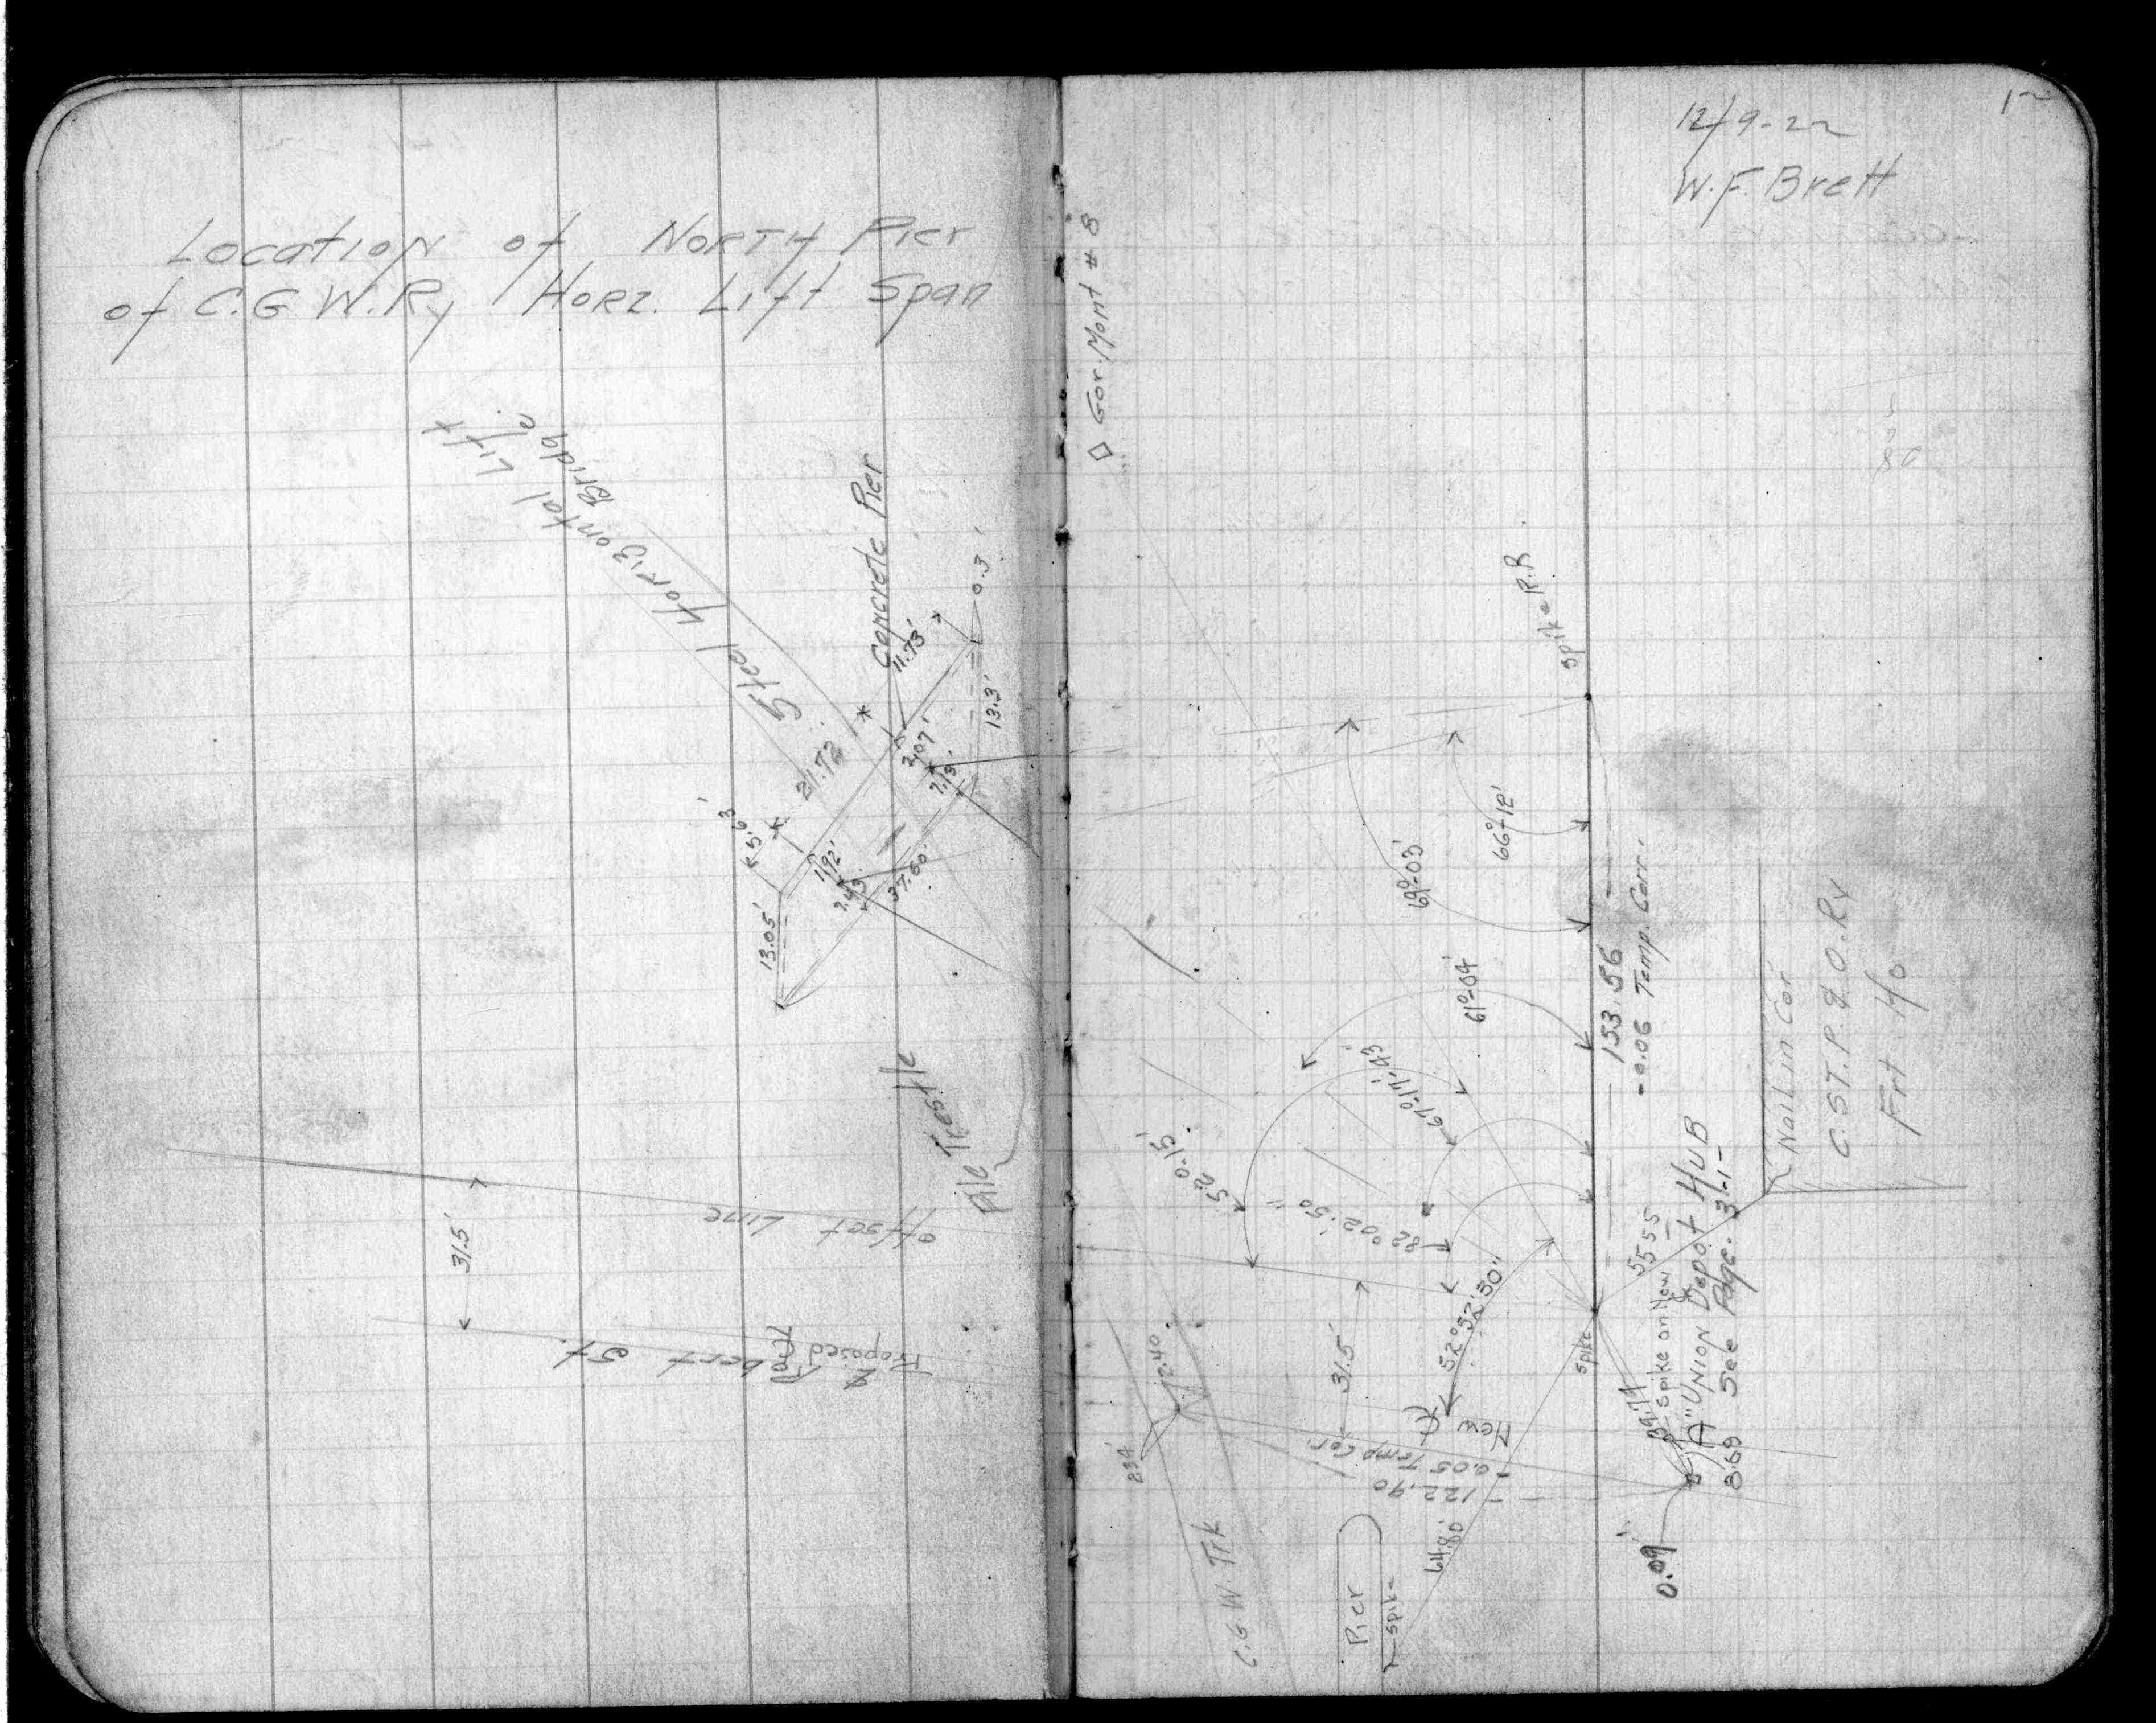 Location of North Pier
of C.G.W.Ry Horz. Lift Span
Steel Horizontal Lift
Bridge
Concrete Pier
11.73'
0.3'
13.3'
2.07'
7.13'
21.72
5.63'
1.92'
37.60'
13.05'
Pile Trestle
Offset Line
31.5'
Proposed
Robert St.
12/9-22
W.F. Brett
1
Gov. Mont # 8
Spike R.R.
66°-12'
69°-03'
61°-04'
67°-17'-43"
5°-20'-15"
82°-02'-50"
52°-52'-30"
153.56
-0.06 Temp. Corr.
Nail in Cor
C.ST.P.&O.Ry
Frt. Ho
55.55
Spike on New
"A" Union Depot Hub
369 See Page 31-1-
39.74
Spike
0.09'
31.5'
New
-0.05 Temp Cor.
122.90
64.80'
2.40
2.34'
C.G.W. Trk
Pier
Spike